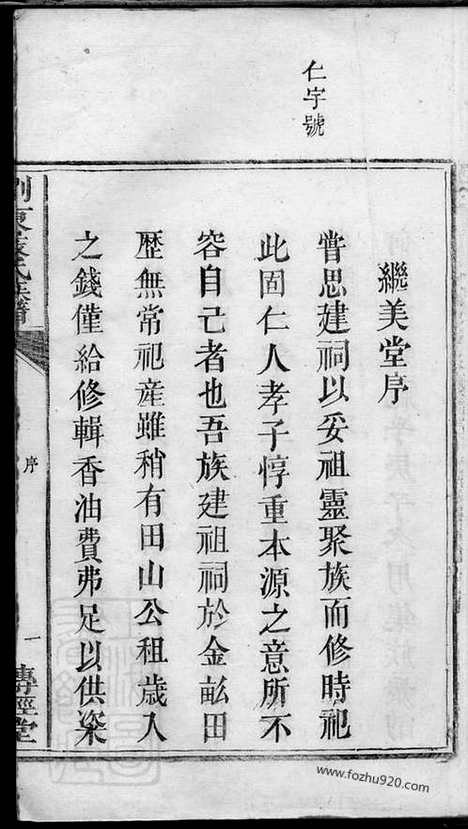 仁字號
繼美堂序
嘗思建祠以妥祖靈聚族而修時祀
此固仁人孝子惇重本源之意所不
容自己者也吾族建祖祠於金畆田
歷無常祀產雖稍有田山公租歲入
之錢僅給修輯香油費弗足以供粢
氏族譜
序
一
傳經堂
www.fozhu920.com